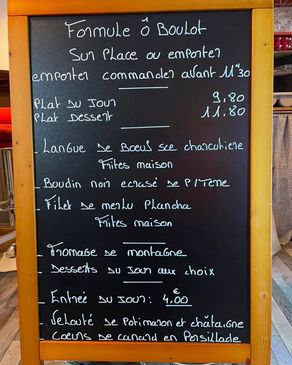 Formule ô Boulot
Sur place ou emporter
emporter commander avant 11"30
Plat du jour 9,80
Plat Dessert 11.80
- Langue de Boeuf sce charcutiere
Frites maison
- Boudin noir ecrasé de P!Terre
- Filet de merlu Plancha
Frites maison
- Fromage de montagne
- Desserts du jour aux choix
- Entrée du jour : 4,00 €
- Velouté de Potimaron et châtaigne
Coeurs de canard en Persillade